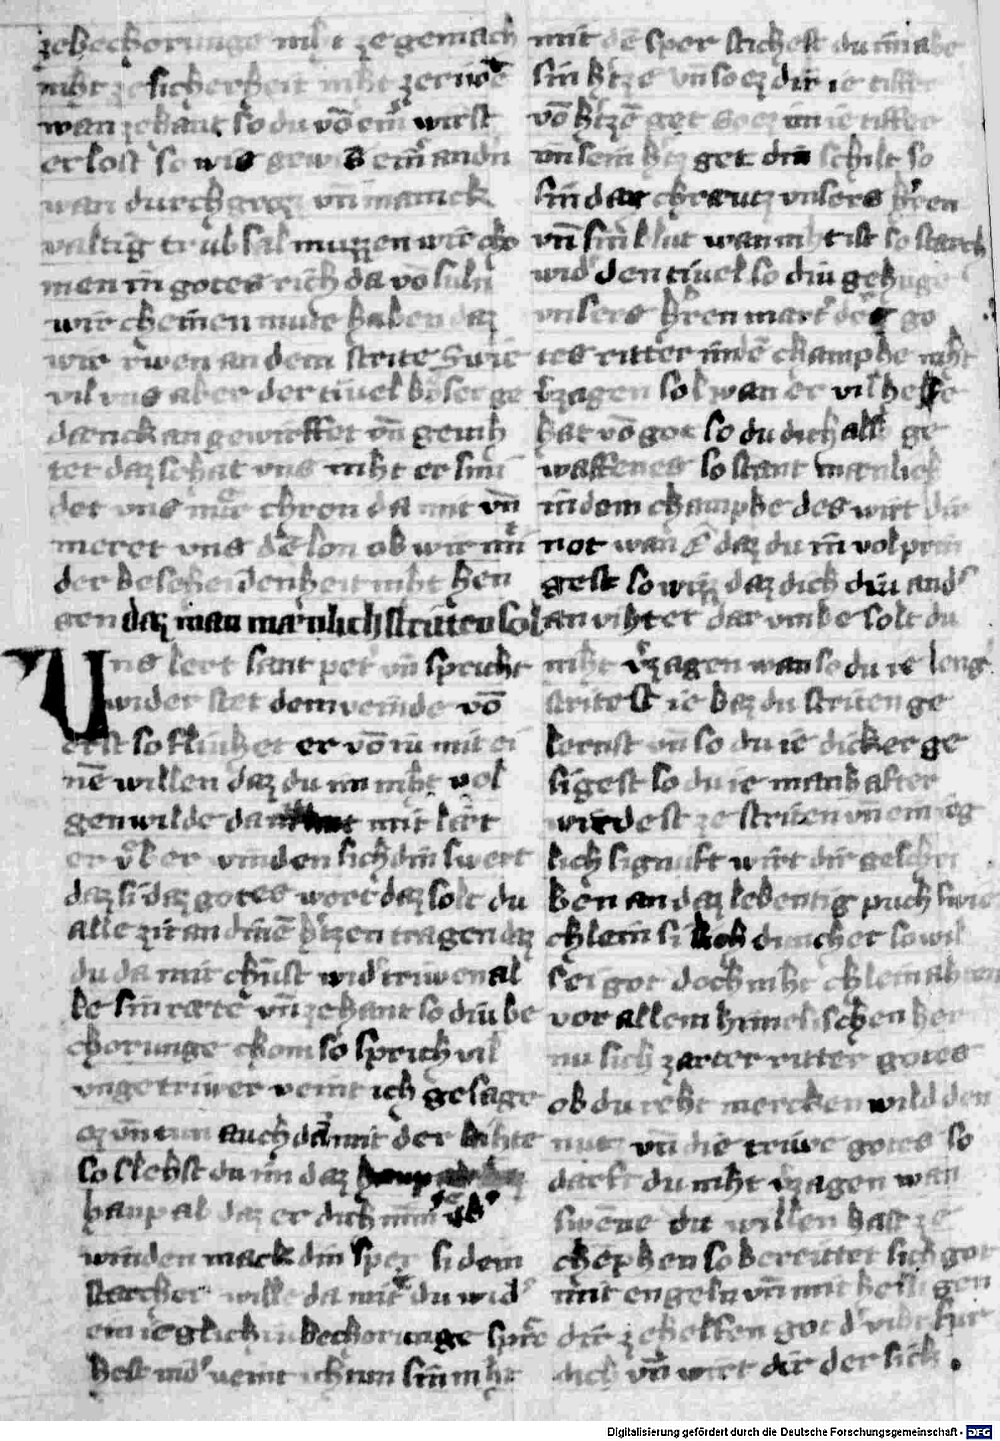 zebechorunge niht ze gemach
niht ze sicherheit niht zerwde
wan zehant so du vō eīr wirst
erlost so wis gewis einr andn
wan durch groz vn̄ manick
valtig trubsal muzzen wir cho
men in gotes rich da vō suln
wir cheinen mute haben daz
wir rwen an dem strite Swie
vil vns aber der tiuel boser ge
danck an gewirffet vn̄ gemh
tet daz schat vns niht er smi
det vns mer chron da mit vn̄
meret vns dē lon ob wir im
der bescheidenheit niht hen
gen daz man manlich striten sol
Uns lert sant peter vn̄ spricht
widerstet dem veinde vō
erst so fliuhet er vō iu mit ei
nē willen daz du im niht vol
gen wilde da mit lært
er vber vinden sich din swert
daz si daz gotes wort daz solt du
alle zit an dinē htzen tragen daz
du da mit chunst wider triwen al
le sin ræte vn̄ zehant so diu be
chorunge chom so sprich vil
vngetriwer veint ich gesage
ez vn̄ tun auch da mit der bihte
so slehst du im daz
haup ab daz er dich nimmer vber
winden mack din sper si dem
starcher wille da mit du wider
ein ieglich bechorunge spre
hest nider veint ich tun sin niht
mit dē sper stichest du im abe
sin htze vn̄ so ez dir ie tiffer
vō htzē get so ez im ie tiffer
in sein htz get din schilt so
sin daz chreutz vnsers hren
vn̄ sin blut wan niht ist so starch
wider den tiuel so diu gehuge
vnsers hren marter des go
tes ritter in dē champhe niht
vzagen sol wan er vil helfe
hat vō got so du dich alle ge
waffenes so stant mænlich
in dem champhe des wirt dir
not wan e daz du in vol prin
gest so wizz daz dich diu ander
an vihtet dar vmbe solt du
niht vzagen wan so du ie leng
stritest ie baz du striten ge
lernst vn̄ so du ie dicker ge
sigest so du ie manhafter
wirdest ze striten vn̄ ein ieg
lich signuft wirt dir geschri
ben an daz lebentig puch swie
chlein si dich duncket so wil
sei got doch niht chlein ahten
vor allem himelischen her
nu sich zarter ritter gotes
ob du reht mercken wild den
nutz vn̄ die triwe gotes so
darft du niht vzagen wan
swēne du willen hast ze
chephen so bereittet sich got
mit engeln vn̄ mit heiligen
dir ze helfen got der viht fur
dich vn̄ wirt dir der sick .
Digitalisierung gefördert durch die Deutsche Forschungsgemeinschaft - DFG